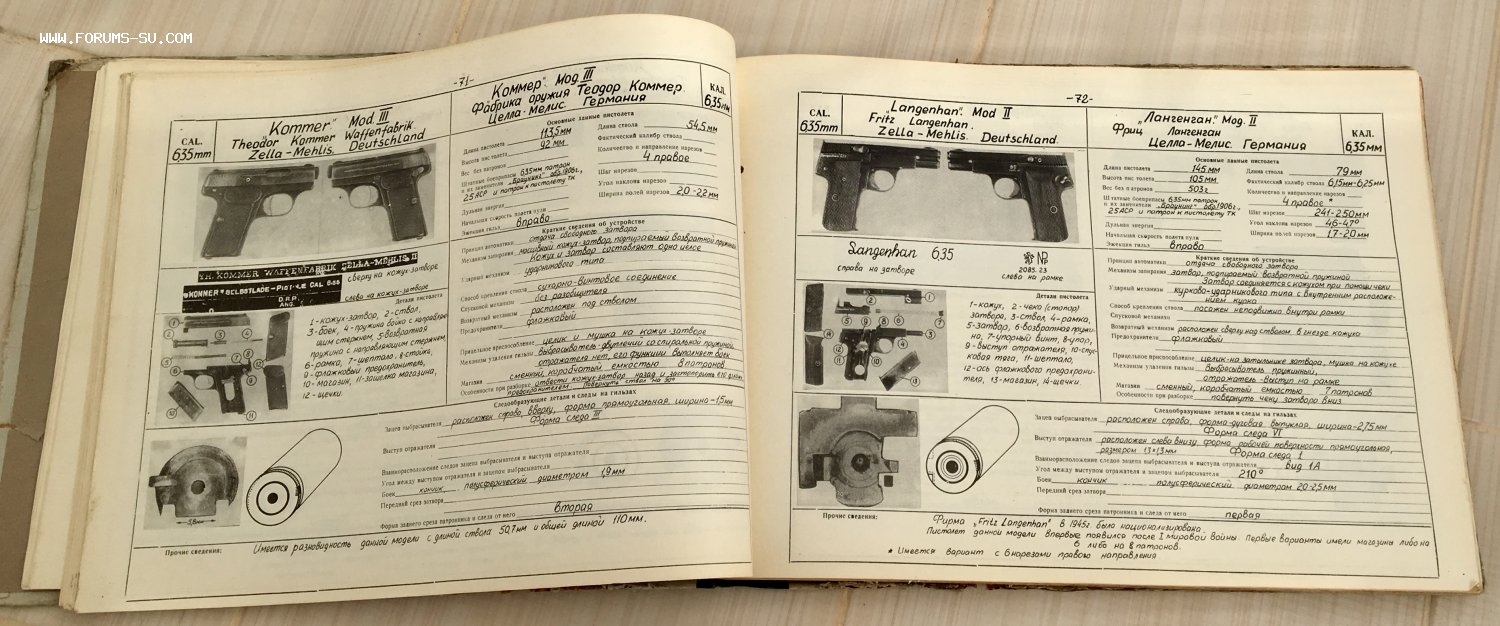 WWW.FORUMS-SU.COM
-71-
CAL.
6,35mm
„Kommer". Mod. III
Theodor Kommer Waffenfabrik
Zella-Mehlis. Deutschland
„Коммер". Мод. III
Фабрика оружия Теодор Коммер.
Целла-Мелис. Германия
КАЛ.
6,35мм
Основные данные пистолета
Длина пистолета 113,5мм
Высота пистолета 92 мм.
Вес без патронов
Штатные боеприпасы 6,35мм патрон
и их заменители „Браунинг" обр. 1906г.,
25 АСР и патрон к пистолету ТК
Дульная энергия
Начальная скорость полета пули
Эжекция гильз вправо
Длина ствола 54,5мм
Фактический калибр ствола
Количество и направление нарезов
4 правое
Шаг нарезов
Угол наклона нарезов
Ширина полей нарезов 2,0-2,2мм
TH. KOMMER WAFFENFABRIK ZELLA-MEHLIS
сверху на кожух-затворе
"KOMMER" SELBSTLADE-PISTOLE CAL 6.35
D.R.P.
ANG.
слева на кожух-затворе
Детали пистолета
1-кожух-затвор, 2-ствол,
3-боек, 4-пружина бойка с направляю-
щим стержнем, 5-возвратная
пружина с направляющим стержнем,
6-рамка, 7-шептало, 8-стойка,
9-флажковый предохранитель,
10-магазин, 11-защелка магазина,
12-щечки.
Краткие сведения об устройстве
Принцип автоматики отдача свободного затвора
Механизм запирания массивный кожух-затвор, подпираемый возвратной пружиной
Кожух и затвор составляют одно целое
Ударный механизм ударникового типа
Способ крепления ствола сухарно-винтовое соединение
Спусковой механизм без разобщителя
Возвратный механизм расположен под стволом
Предохранитель флажковый
Прицельное приспособление целик и мушка на кожух-затворе
Механизм удаления гильзы выбрасыватель-двуплечий со спиральной пружиной,
отражателя нет, его функции выполняет боек
Магазин сменный, коробчатый, емкостью 8 патронов
Особенности при разборке отвести кожух-затвор назад и застопорить его флажк.
предохранителем. Повернуть ствол на 90°
Следообразующие детали и следы на гильзах
Зацеп выбрасывателя расположен справа, вверху, форма прямоугольная, ширина-1,5мм
Форма следа III
Выступ отражателя
Взаиморасположение следов зацепа выбрасывателя и выступа отражателя
Угол между выступом отражателя и зацепом выбрасывателя
Боек кончик полусферический диаметром 1,9мм
Передний срез затвора
Форма заднего среза патронника и следа от него вторая
5,8мм
Прочие сведения: Имеется разновидность данной модели с длиной ствола 50,7мм и общей длиной 110мм.
-72-
CAL.
6,35mm
„Langenhan". Mod II
Fritz Langenhan.
Zella-Mehlis. Deutschland.
„Лангенган." Мод. II
Фриц Лангенган
Целла-Мелис. Германия
КАЛ.
6,35мм
Основные данные пистолета
Длина пистолета 145мм
Высота пистолета 105мм
Вес без патронов 503г
Штатные боеприпасы 6,35мм патрон
и их заменители „Браунинг" обр. 1906г.,
25АСР и патрон к пистолету ТК
Дульная энергия
Начальная скорость полета пули
Эжекция гильз вправо
Длина ствола 79мм
Фактический калибр ствола 6,15мм-6,25мм
Количество и направление нарезов
4 правое*
Шаг нарезов 241-250мм
Угол наклона нарезов
Ширина полей нарезов 1,7-2,0мм
Langenhan 6,35
справа на затворе
2085. 23
слева на рамке
Детали пистолета
1-кожух, 2-чека (стопор)
затвора, 3-ствол, 4-рамка,
5-затвор, 6-возвратная пружи-
на, 7-упорный винт, 8-упор,
9-выступ отражателя, 10-спус-
ковая тяга, 11-шептало,
12-ось флажкового предохрани-
теля, 13-магазин, 14-щечки.
Краткие сведения об устройстве
Принцип автоматики отдача свободного затвора
Механизм запирания затвор, подпираемый возвратной пружиной
Затвор соединяется с кожухом при помощи чеки
Ударный механизм курково-ударникового типа с внутренним расположе-
нием курка
Способ крепления ствола посажен неподвижно внутри рамки
Спусковой механизм
Возвратный механизм расположен сверху над стволом в гнезде кожуха
Предохранитель флажковый
Прицельное приспособление целик-на затыльнике затвора, мушка на кожухе
Механизм удаления гильзы выбрасыватель пружинный,
отражатель-выступ на рамке
Магазин сменный, коробчатый емкостью 7 патронов
Особенности при разборке повернуть чеку затвора вниз
Следообразующие детали и следы на гильзах
Зацеп выбрасывателя расположен справа, форма-дуговая выпуклая, ширина-2,75мм
Форма следа VI
Выступ отражателя расположен слева внизу, форма рабочей поверхности прямоугольная,
размером 1,3×1,3мм Форма следа 1
Взаиморасположение следов зацепа выбрасывателя и выступа отражателя Вид 1А
Угол между выступом отражателя и зацепом выбрасывателя 210°
Боек кончик полусферический диаметром 2,0-2,5мм
Передний срез затвора
Форма заднего среза патронника и следа от него первая
Прочие сведения: Фирма „Fritz Langenhan" в 1945г. была национализирована
Пистолет данной модели впервые появился после I мировой войны. Первые варианты имели магазины либо на
6 либо на 8 патронов.
* Имеется вариант с 6 нарезами правого направления